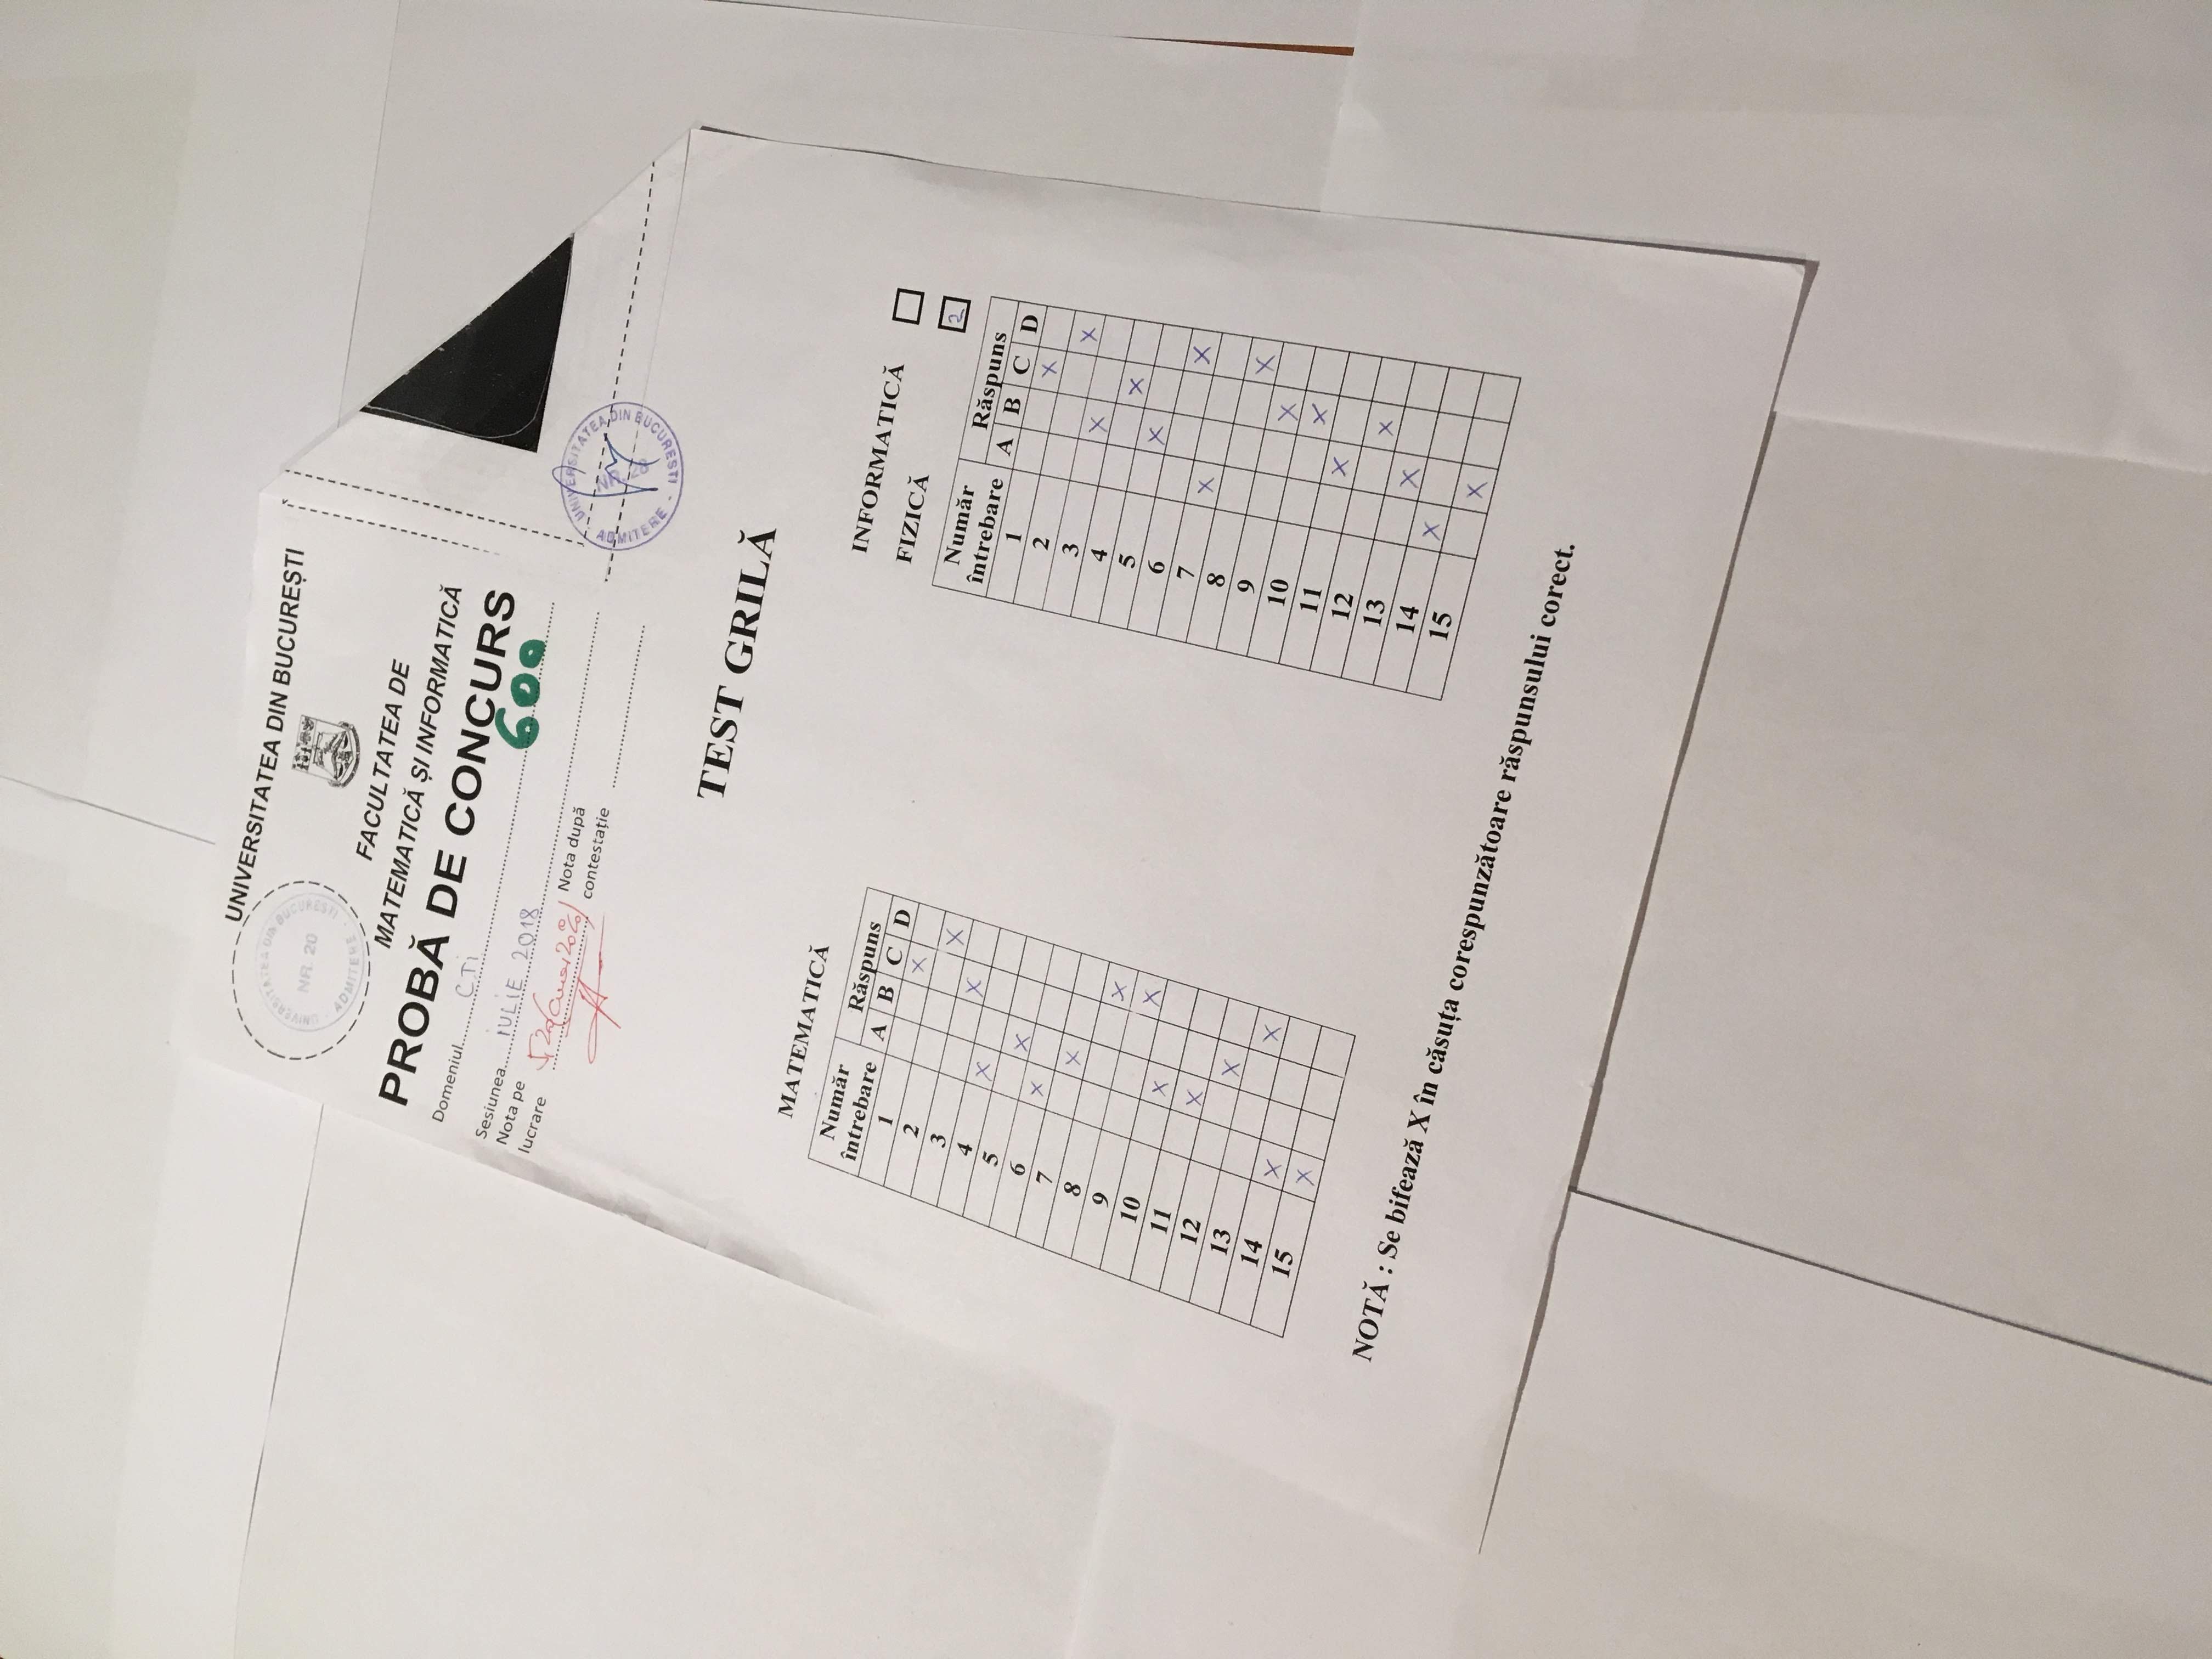 UNIVERSITATEA DIN BUCUREȘTI
UNIVERSITATEA DIN BUCUREȘTI
NR. 20
ADMITERE
FACULTATEA DE
MATEMATICĂ ȘI INFORMATICĂ
PROBĂ DE CONCURS
Domeniul CTi
600
Sesiunea IULIE 2018
Nota pe
lucrare
5,20
Nota după
contestație
UNIVERSITATEA DIN BUCUREȘTI
NR. 20
ADMITERE
TEST GRILĂ
MATEMATICĂ
Număr
întrebare
Răspuns
A B C D
1 X
2 X
3 X
4 X
5 X
6 X
7 X
8 X
9 X
10 X
11 X
12 X
13 X
14 X
15 X
INFORMATICĂ
FIZICĂ 2
Număr
întrebare
Răspuns
A B C D
1 X
2 X
3 X
4 X
5 X
6 X
7 X
8 X
9 X
10 X
11 X
12 X
13 X
14 X
15 X
NOTĂ : Se bifează X în căsuța corespunzătoare răspunsului corect.